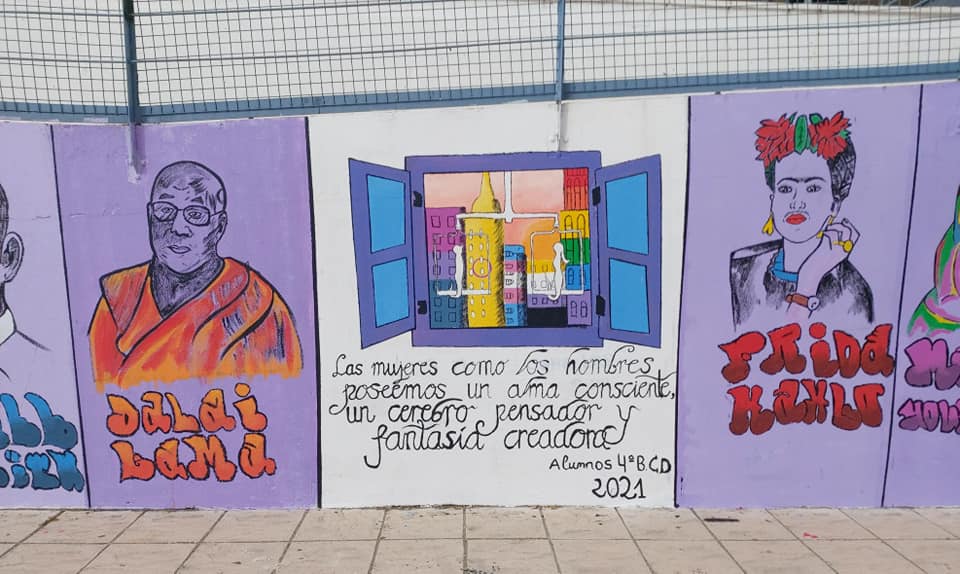 DALAI
LAMA
Las mujeres como los hombres
poseemos un alma consciente,
un cerebro pensador y
fantasía creadora
Alumnos 4ºB.C.D
2021
FRIDA
KAHLO